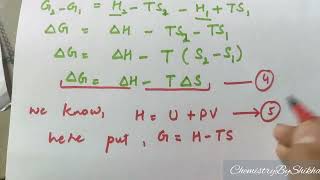 G₂-G₁ = H₂ - TS₂ - H₁ + TS₁
ΔG = ΔH - TS₂ - TS₁
ΔG = ΔH - T (S₂ - S₁)
ΔG = ΔH - TΔS — ④
we know, H = U + PV → ⑤
here put, G = H - TS
ChemistryByShikha